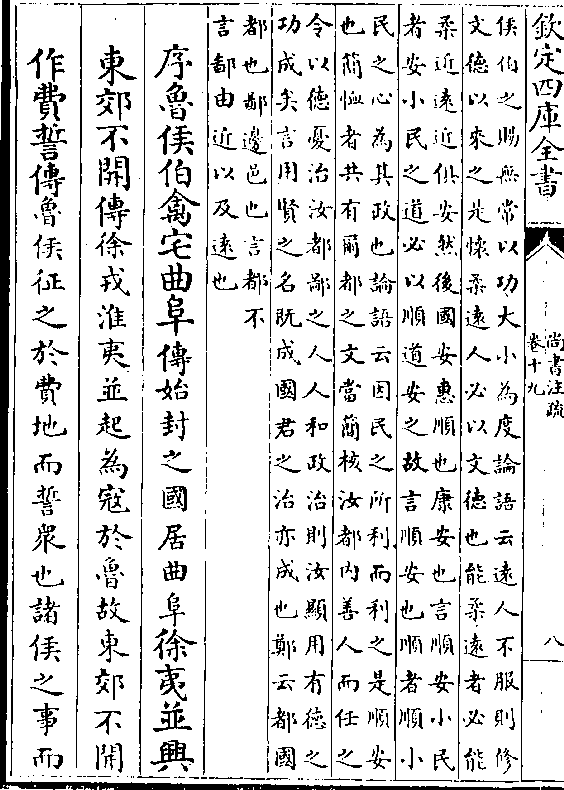 欽定四庫全書
尚書注疏
卷十九
八
侯伯之賜無常以功大小為度論語云遠人不服則修
文德以來之是懐柔遠人必以文德也能柔遠者必能
柔近遠近俱安然後國安惠順也康安也言順安小民
者安小民之道必以順道安之故言順安也順者順小
民之心為其政也論語云因民之所利而利之是順安
也簡恤者共有爾都之文當簡核汝都內善人而任之
令以德憂治汝都鄙之人人和政治則汝顯用有德之
功成矣言用賢之名既成國君之治亦成也鄭云都國
都也鄙邊邑也言都不
言鄙由近以及遠也
序魯侯伯禽宅曲阜傳始封之國居曲阜徐夷並興
東郊不開傳徐戎淮夷並起為寇於魯故東郊不開
作費誓傳魯侯征之於費地而誓衆也諸侯之事而